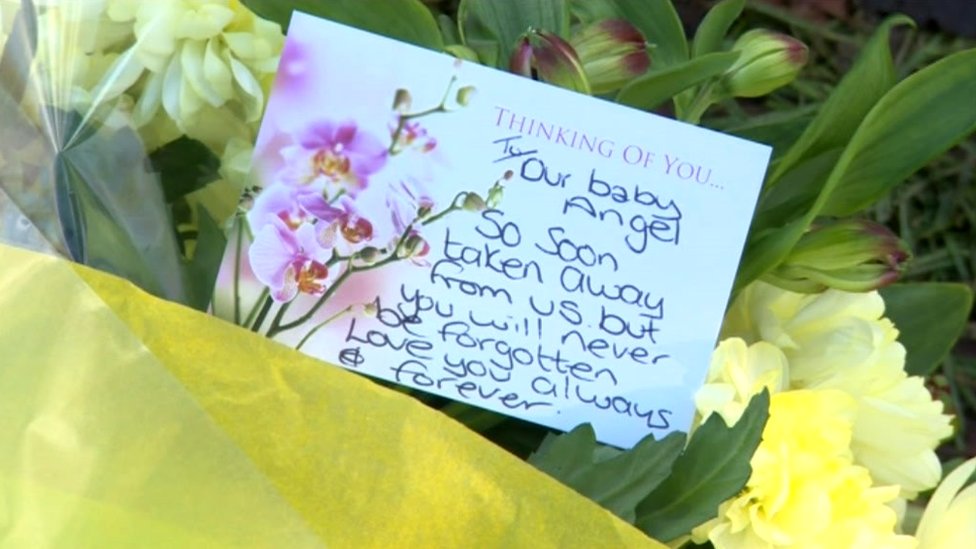 THINKING OF YOU...
To
Our baby
Angel
So soon
taken away
from us. but
you will never
be forgotten
Love you always
& forever.